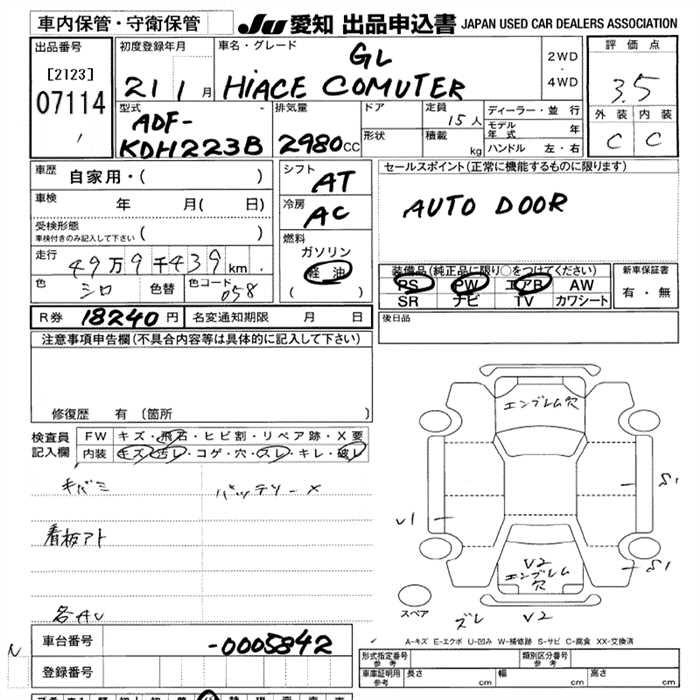 車内保管・守衛保管
JU 愛知 出品申込書 JAPAN USED CAR DEALERS ASSOCIATION
出品番号
[2123]
07114
初度登録年月
21 1 月
車名・グレード
GL
HIACE COMUTER
2WD
・
4WD
評価点
3.5
外装 内装
C C
型式
ADF-
KDH223B
排気量
2980cc
ドア
形状
定員
15人
積載
kg
ディーラー・並行
モデル年式 年
ハンドル 左・右
車歴
自家用・( )
車検
年 月( 日)
受検形態
車検付きのみ記入して下さい ( )
走行
49万9千439km
色
シロ
色替
色コード
058
シフト
AT
冷房
AC
燃料
ガソリン
軽油
( )
セールスポイント(正常に機能するものに限ります)
AUTO DOOR
装備品(純正品に限り○をつけてください)
PS PW エアB AW
SR ナビ TV カワシート
新車保証書
有・無
R券 18240円
名変通知期限 月 日
後日品
注意事項申告欄(不具合内容等は具体的に記入して下さい)
修復歴 有 (箇所 )
検査員記入欄
FW キズ・飛石・ヒビ割・リペア跡・X要
内装 キズ・汚レ・コゲ・穴・スレ・キレ・破レ
キバミ
バッテリーX
看板アト
各AU
エンブレム穴
S1
U1
V2
エンブレム
穴
S1
スペア
ズレ
V2
A-キズ E-エクボ U-凹み W-補修跡 S-サビ C-腐食 XX-交換済
N
車台番号
-0005842
登録番号
形式指定番号
参考
類別区分番号
参考
車庫証明用
参考
長さ
cm
幅
cm
高さ
cm